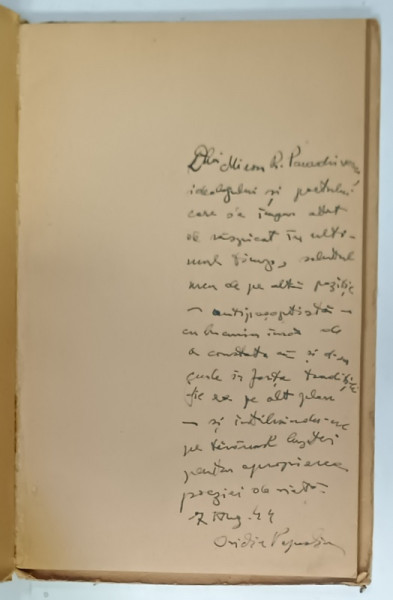 Dlui Miron R. Paraschivescu
ideologului și poetului
care s'a impus atât
de răspicat în ulti-
mul timp, salutul
meu de pe altă poziție
— antipașoptistă —
cu bucuria însă de
a constata că și
în forța
fie ea pe alt plan
— și întâlnindu-ne
pe tărâmul luptei
pentru apropierea
poeziei de viață.
7 Aug. 44
Ovidiu Papadima